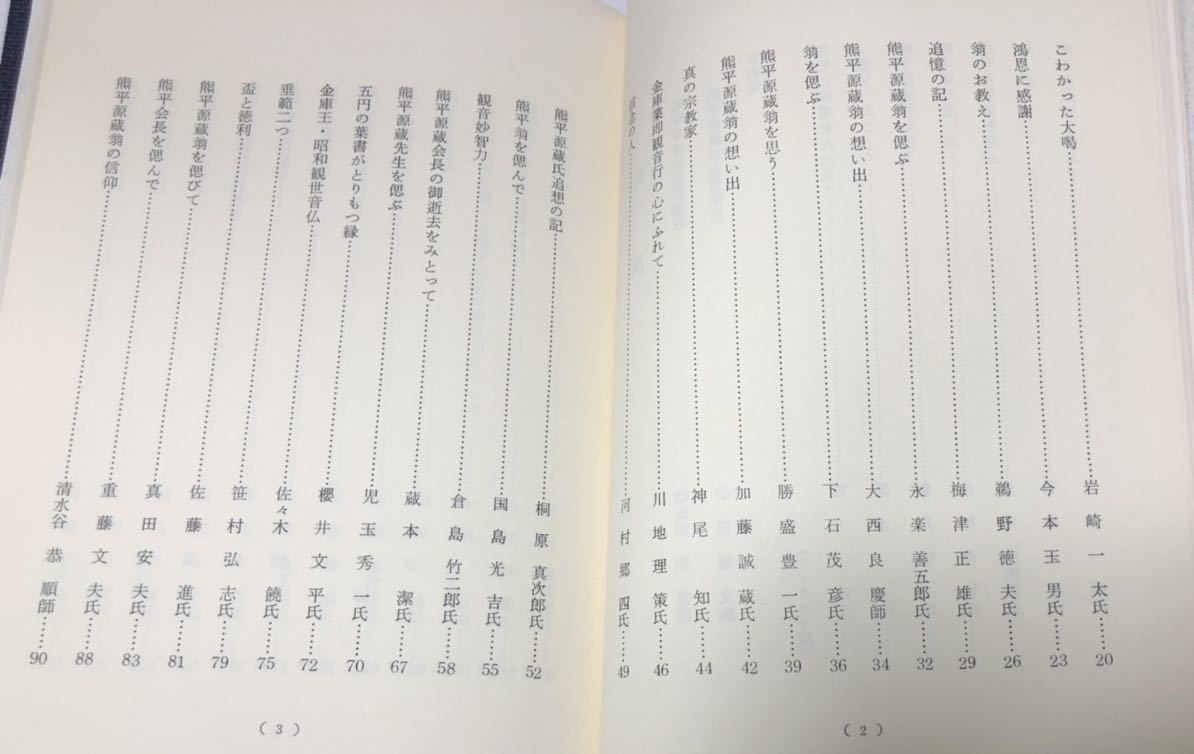 こわかった大喝……岩崎一太氏……20
鴻恩に感謝……今本玉男氏……23
翁のお教え……鵜野徳夫氏……26
追憶の記……梅津正雄氏……29
熊平源蔵翁を偲ぶ……永楽善五郎氏……32
熊平源蔵翁の想い出……大西良慶師……34
翁を偲ぶ……下石茂彦氏……36
熊平源蔵翁を思う……勝盛豊一氏……39
熊平源蔵翁の想い出……加藤誠蔵氏……42
真の宗教家……神尾知氏……44
金庫業即観音行の心にふれて……川地理策氏……46
の人……河村郷四氏……49
(2)
熊平源蔵氏追想の記……桐原真次郎氏……52
熊平翁を偲んで……国島光吉氏……55
観音妙智力……倉島竹二郎氏……58
熊平源蔵会長の御逝去をみとって……蔵本潔氏……67
熊平源蔵先生を偲ぶ……児玉秀一氏……70
五円の葉書がとりもつ縁……櫻井文平氏……72
金庫王・昭和観世音仏……佐々木饒氏……75
垂範二つ……笹村弘志氏……79
盃と徳利……佐藤進氏……81
熊平源蔵翁を偲びて……真田安夫氏……83
熊平会長を偲んで……重藤文夫氏……88
熊平源蔵翁の信仰……清水谷恭順師……90
(3)